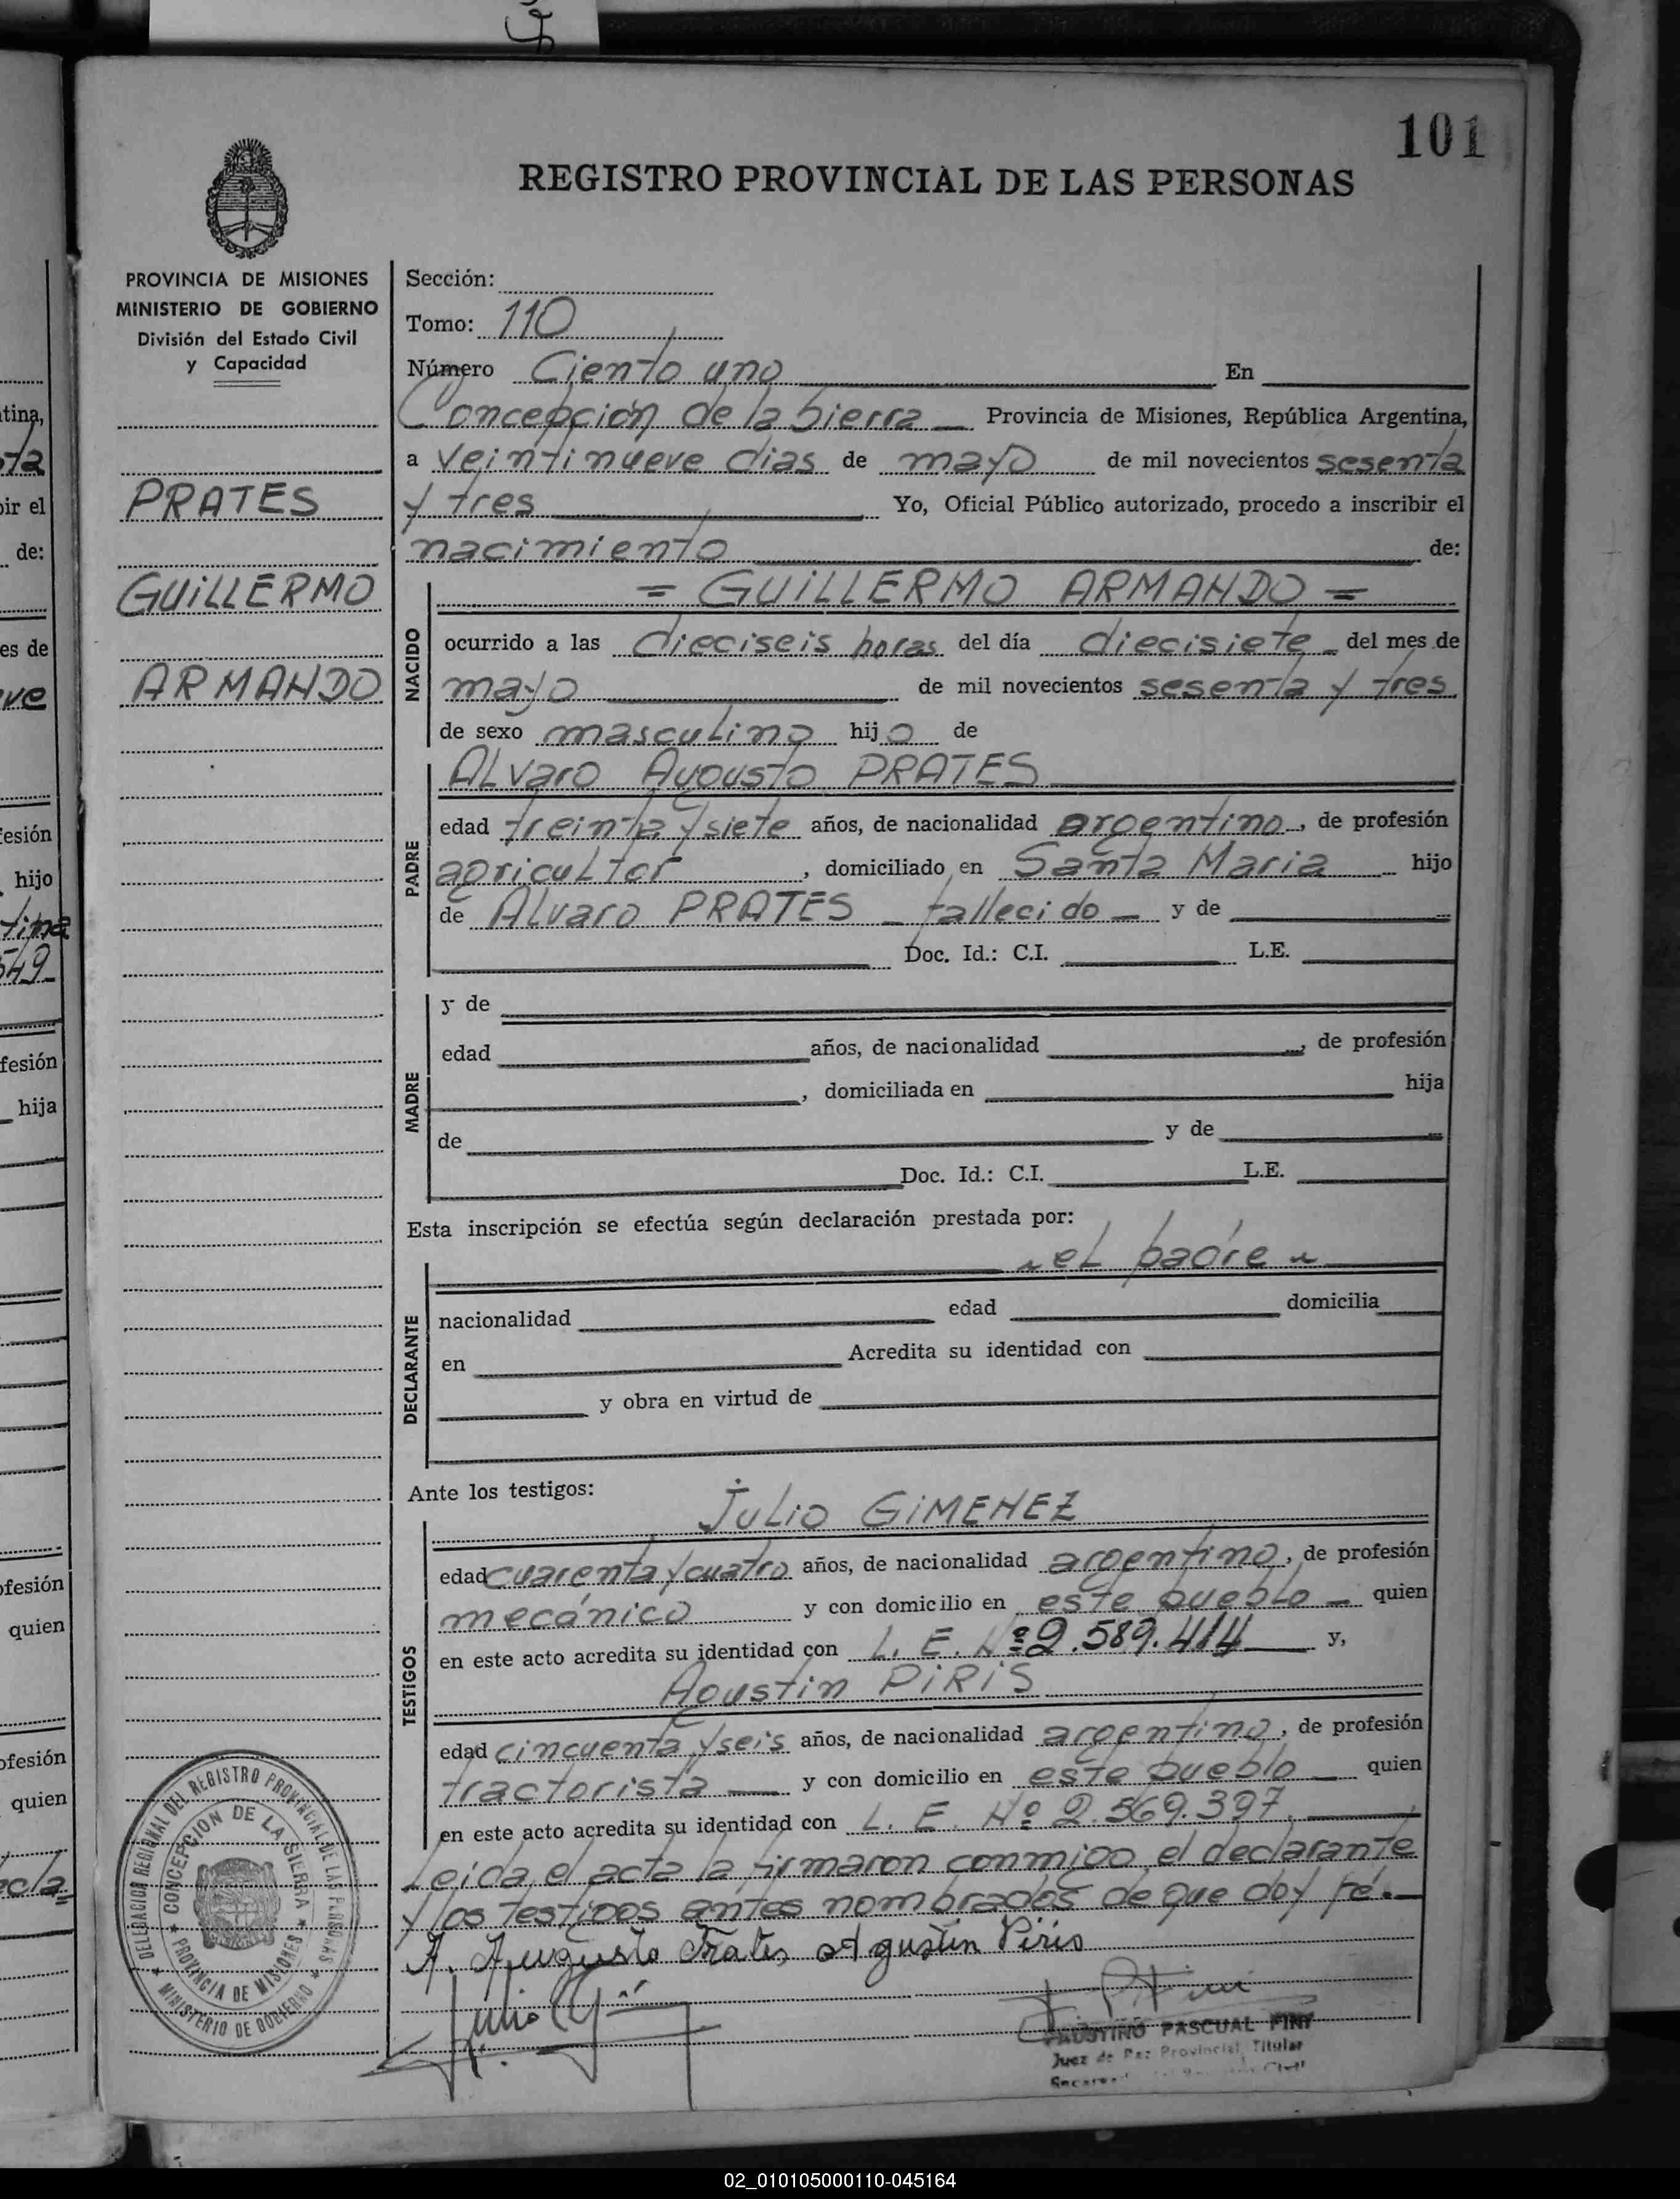 101
REGISTRO PROVINCIAL DE LAS PERSONAS
PROVINCIA DE MISIONES
MINISTERIO DE GOBIERNO
División del Estado Civil
y Capacidad
PRATES
GUILLERMO
ARMANDO
Sección:
Tomo: 110
Número Ciento uno En
Concepción de la Sierra Provincia de Misiones, República Argentina,
a veintinueve dias de mayo de mil novecientos sesenta
y tres Yo, Oficial Público autorizado, procedo a inscribir el
nacimiento de:
= GUILLERMO ARMANDO =
NACIDO
ocurrido a las dieciseis horas del día diecisiete del mes de
mayo de mil novecientos sesenta y tres
de sexo masculino hijo de
Alvaro Augusto PRATES
PADRE
edad treinta y siete años, de nacionalidad argentino, de profesión
agricultor, domiciliado en Santa Maria hijo
de Alvaro PRATES - fallecido - y de
Doc. Id.: C.I. L.E.
MADRE
y de
edad años, de nacionalidad , de profesión
, domiciliada en hija
de y de
Doc. Id.: C.I. L.E.
Esta inscripción se efectúa según declaración prestada por:
el padre
DECLARANTE
nacionalidad edad domicilia
en Acredita su identidad con
y obra en virtud de
Ante los testigos:
Julio GIMENEZ
TESTIGOS
edad cuarenta y cuatro años, de nacionalidad argentino, de profesión
mecánico y con domicilio en este pueblo quien
en este acto acredita su identidad con L. E. Nº 2.589.414 y,
Agustin PIRIS
edad cincuenta y seis años, de nacionalidad argentino, de profesión
tractorista y con domicilio en este pueblo quien
en este acto acredita su identidad con L. E. Nº 2.569.397.
Leida el acta la firmaron conmigo el declarante
y los testigos antes nombrados de que doy fé.
A. Augusto Prates Agustin Piris
Julio
FAUSTINO PASCUAL FINI
Juez de Paz Provincial Titular
DELEGACION REGIONAL DEL REGISTRO PROVINCIAL DE LAS PERSONAS
MINISTERIO DE GOBIERNO
CONCEPCION DE LA SIERRA
PROVINCIA DE MISIONES
tina,
ir el
de:
es de
ve
esión
hijo
tina
549
fesión
hija
fesión
quien
ofesión
quien
ecla
02_010105000110-045164